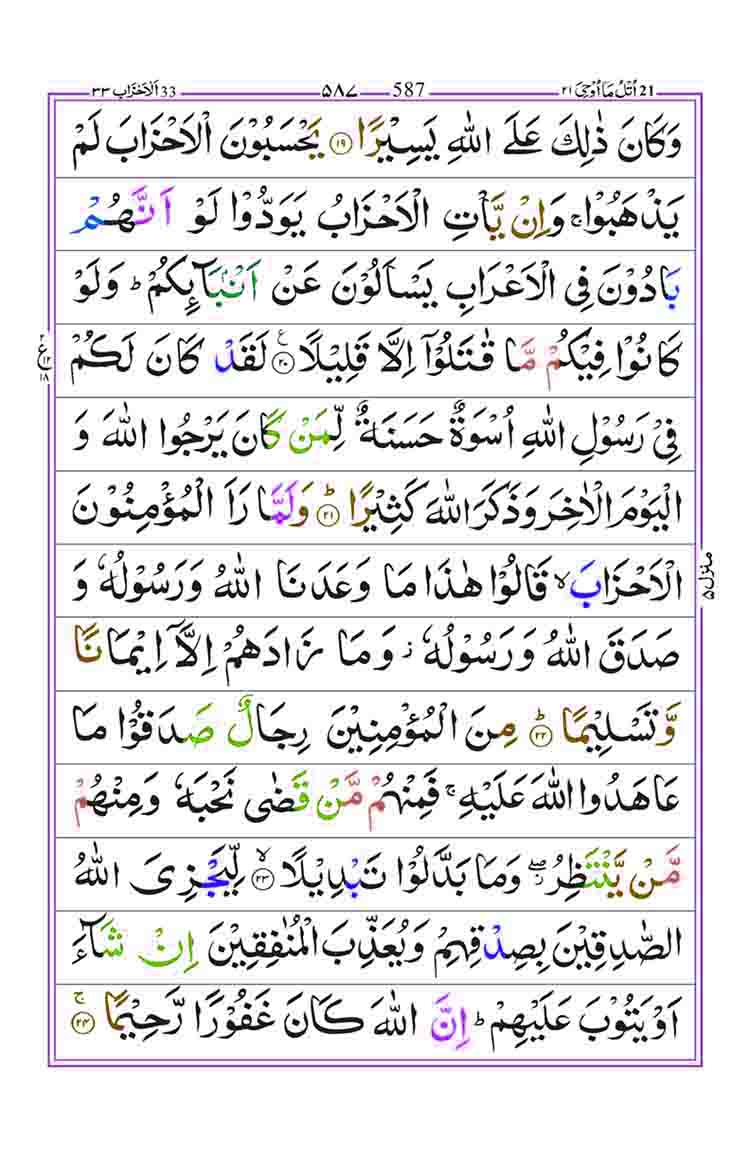 اَلْاَحْزَاب ٣٣ 33 ٥٨٧ 587 اُتْلُ مَا اُوْحِىَ ٢١ 21
وَكَانَ ذٰلِكَ عَلَى اللّٰهِ يَسِيْرًا ۝١٩ يَحْسَبُوْنَ الْاَحْزَابَ لَمْ
يَذْهَبُوْا ۚ وَاِنْ يَّاْتِ الْاَحْزَابُ يَوَدُّوْا لَوْ اَنَّهُمْ
بَادُوْنَ فِى الْاَعْرَابِ يَسْاَلُوْنَ عَنْ اَنْۢبَآئِكُمْ ؕ وَلَوْ
كَانُوْا فِيْكُمْ مَّا قٰتَلُوْۤا اِلَّا قَلِيْلًا ۝٢٠ ع لَقَدْ كَانَ لَكُمْ
ع ٢ ١٢ ١٨
فِىْ رَسُوْلِ اللّٰهِ اُسْوَةٌ حَسَنَةٌ لِّمَنْ كَانَ يَرْجُوا اللّٰهَ وَ
الْيَوْمَ الْاٰخِرَ وَذَكَرَ اللّٰهَ كَثِيْرًا ؕ۝٢١ وَلَمَّا رَاَ الْمُؤْمِنُوْنَ
الْاَحْزَابَ ۙ قَالُوْا هٰذَا مَا وَعَدَنَا اللّٰهُ وَرَسُوْلُهٗ وَ
منزل ٥
صَدَقَ اللّٰهُ وَرَسُوْلُهٗ ز وَمَا زَادَهُمْ اِلَّاۤ اِيْمَانًا
وَّتَسْلِيْمًا ؕ۝٢٢ مِنَ الْمُؤْمِنِيْنَ رِجَالٌ صَدَقُوْا مَا
عَاهَدُوا اللّٰهَ عَلَيْهِ ۚ فَمِنْهُمْ مَّنْ قَضٰى نَحْبَهٗ وَمِنْهُمْ
مَّنْ يَّنْتَظِرُ ۖز وَمَا بَدَّلُوْا تَبْدِيْلًا ۙ۝٢٣ لِّيَجْزِىَ اللّٰهُ
الصّٰدِقِيْنَ بِصِدْقِهِمْ وَيُعَذِّبَ الْمُنٰفِقِيْنَ اِنْ شَآءَ
اَوْ يَتُوْبَ عَلَيْهِمْ ؕ اِنَّ اللّٰهَ كَانَ غَفُوْرًا رَّحِيْمًا ۚ۝٢٤